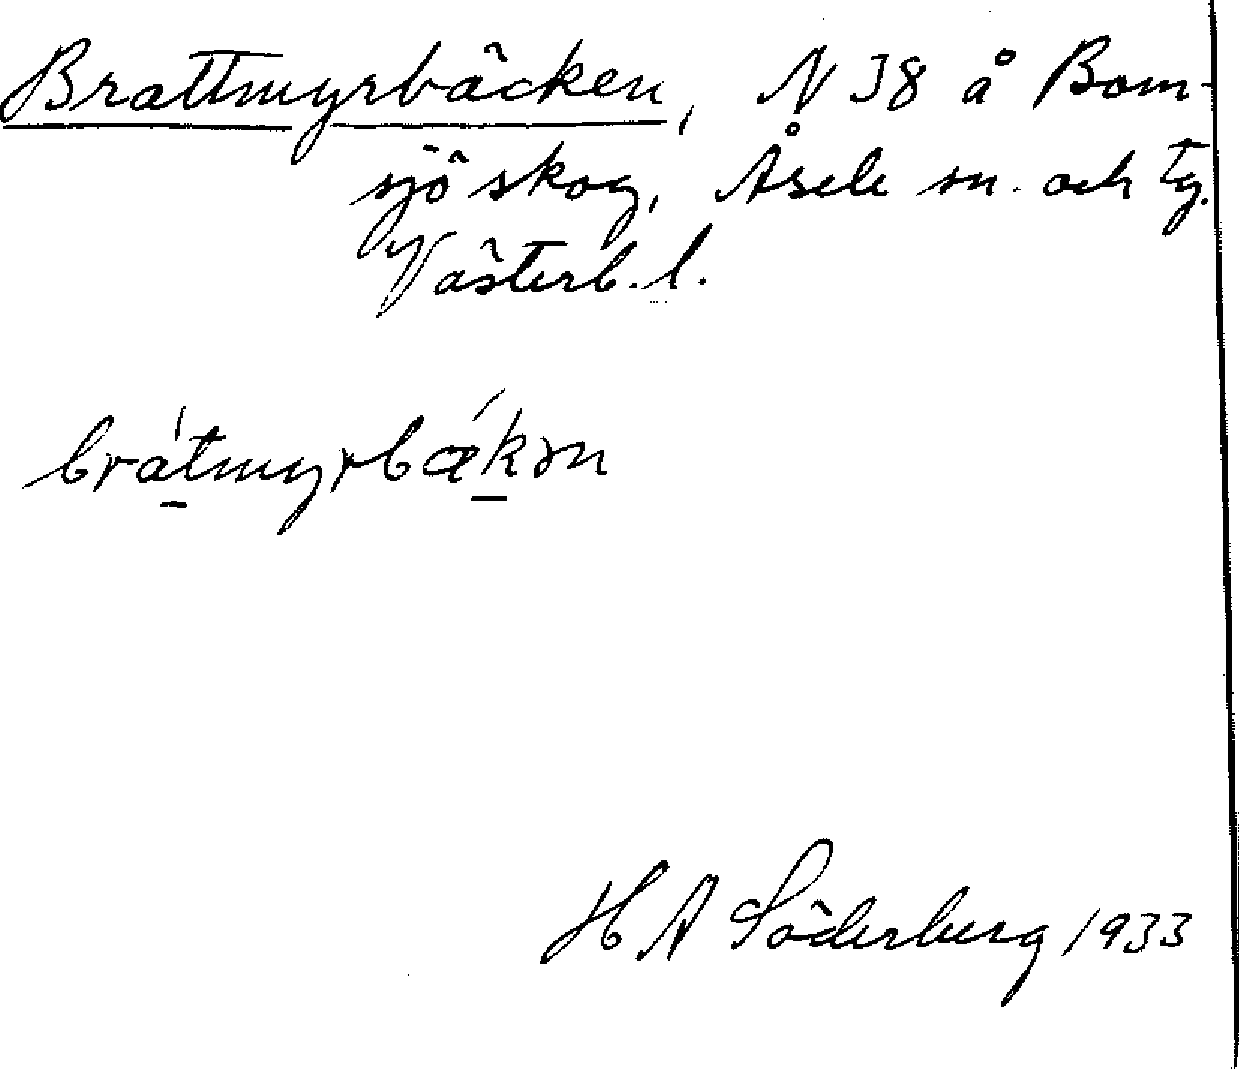 Brattmyrbäcken, N 38 å Bom-
sjö skog, Åsele sn. och tg.
Västerb. l.
brátmyrbǽkən
H A Söderberg 1933